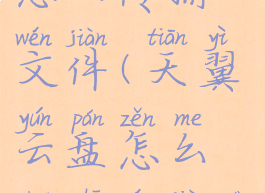 wén jiàn tiān yì
文件(天翼
yún pán zěn me
云盘怎么